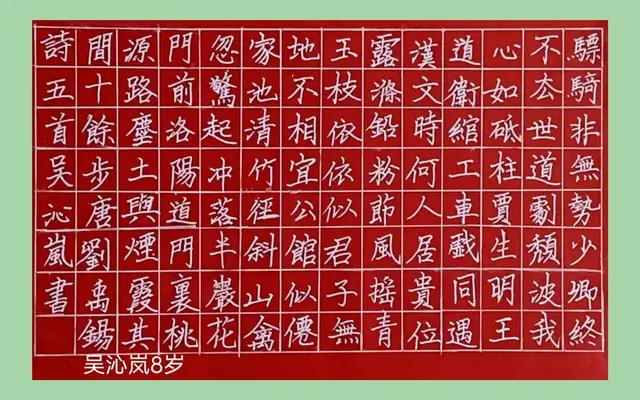 驃騎非無勢少卿終
不厺世道劇頹波我
心如砥柱賈生明王
道衛綰工車戲同遇
漢文時何人居貴位
露滌鉛粉節風搖青
玉枝依依似君子無
地不相宜公館似僊
家池清竹徑斜山禽
忽驚起冲落半巖花
門前洛陽道門裏桃
源路塵土與煙霞其
間十餘步唐劉禹錫
詩五首吴沁嵐書
吴沁岚8岁